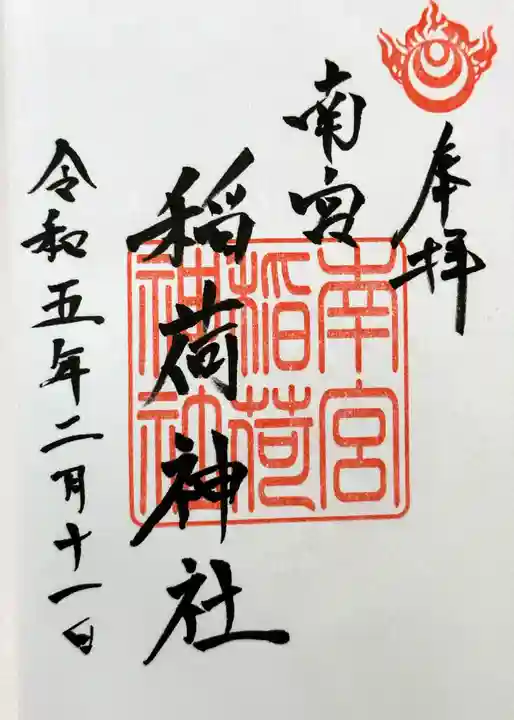 奉拝
南宮
稲荷神社
南宮
稲荷
神社
令和五年二月十一日